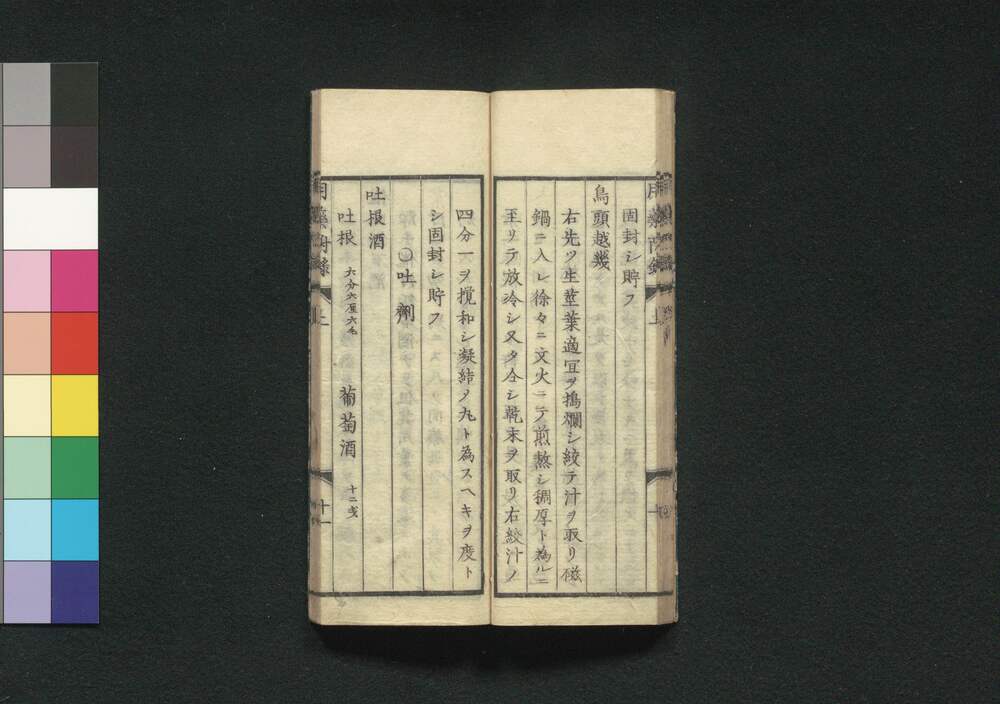 固封シ貯フ
烏頭越幾
右先ツ生莖葉適宜ヲ搗爛シ絞テ汁ヲ取リ磁
鍋ニ入レ徐々ニ文火ニテ煎熬シ稠厚ト為ルニ
至リテ放冷シ又タ仝シ乾末ヲ取リ右絞汁ノ
四分一ヲ攪和シ凝結メ丸ト為スヘキヲ度ト
シ固封シ貯フ
○吐劑
吐根酒
吐根 六分六厘六毛 葡萄酒 十二戔
用藥附錄 上 十一